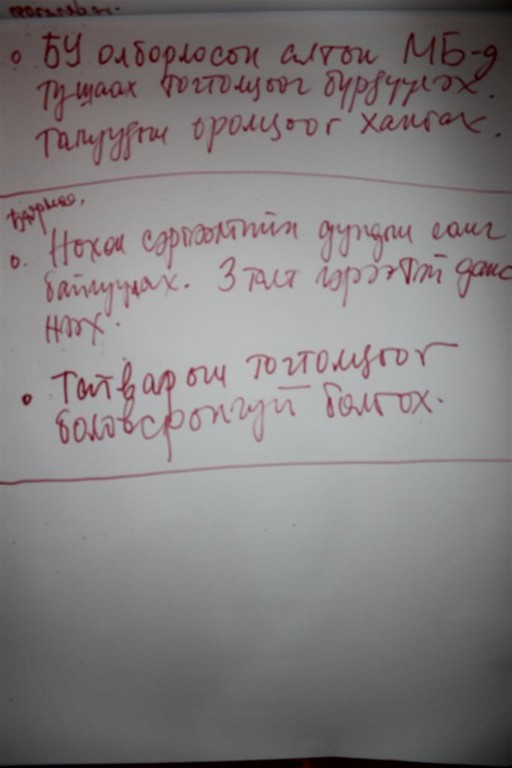 БУ олборлосон алтын МБ-д
тушаах тогтолцоог бүрдүүлэх.
талуудын оролцоог хангах.
Нөхөн сэргээлтийн дундын санг
байгуулах. 3 талт гэрээтэй данс
нээх.
Татварын тогтолцоог
боловсронгуй болгох.